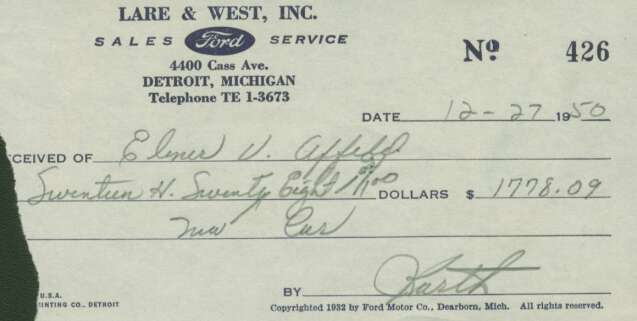 LARE & WEST, INC.
SALES Ford SERVICE
4400 Cass Ave.
DETROIT, MICHIGAN
Telephone TE 1-3673
Nº 426
DATE 12-27 1950
CEIVED OF Elmer V. Affeld
Seventeen H. Seventy Eight 9/100 DOLLARS $ 1778.09
New Car
BY
U.S.A.
INTING CO., DETROIT
Copyrighted 1932 by Ford Motor Co., Dearborn, Mich. All rights reserved.